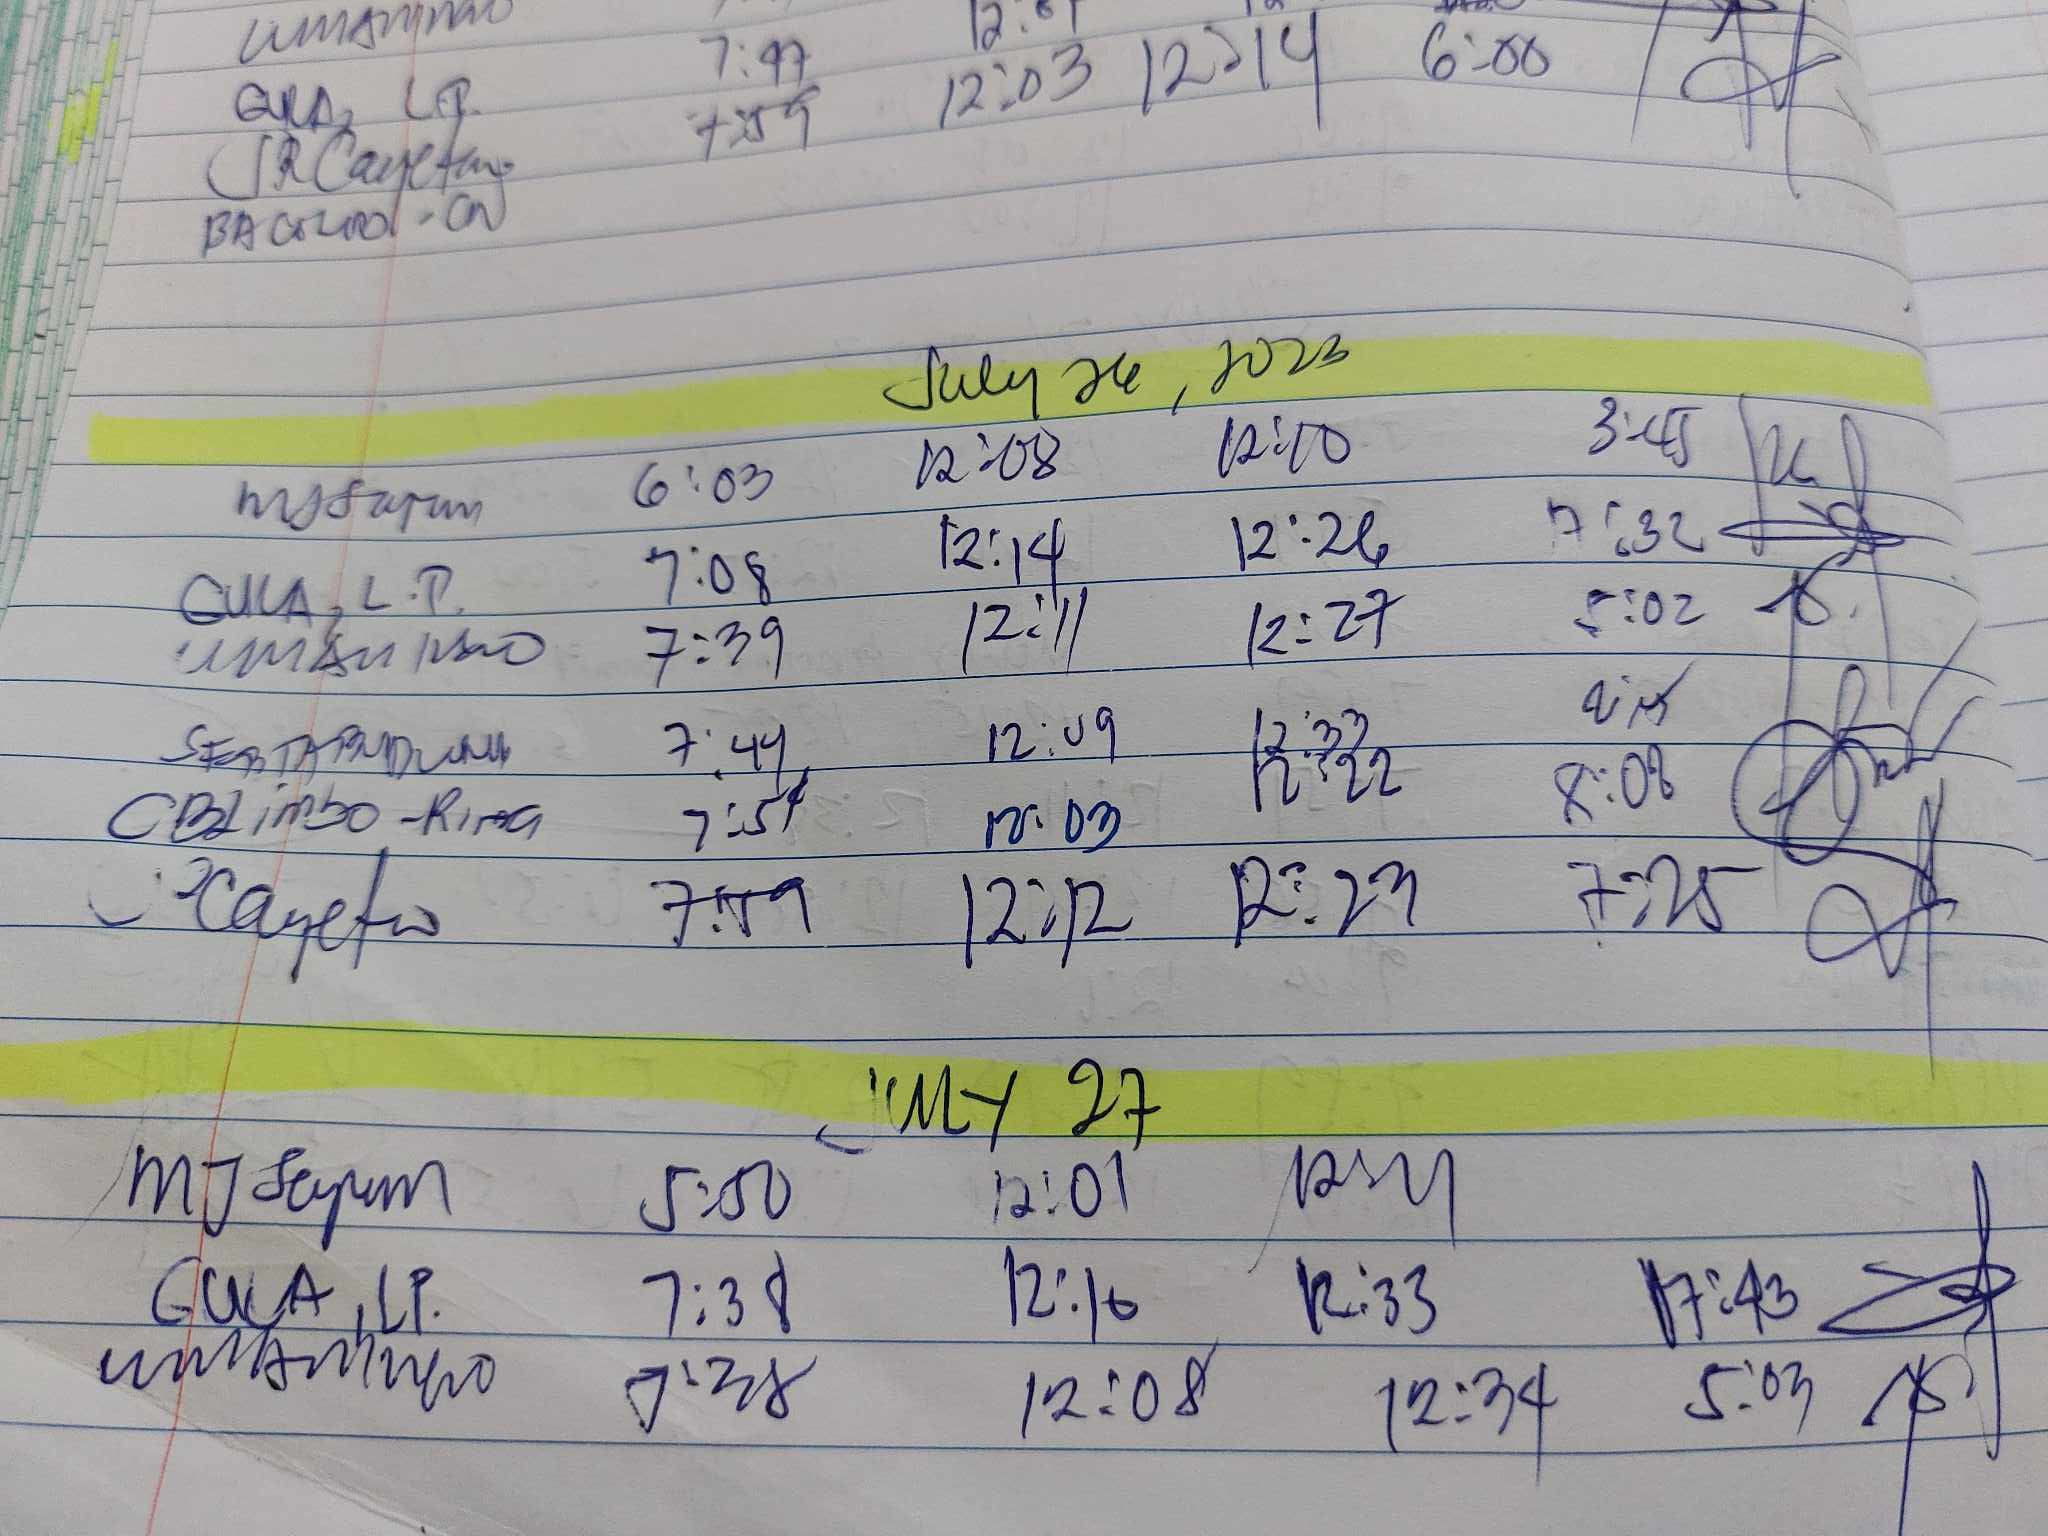 7:47 12:01
GULA, L.P. 7:59 12:03 12:14 6:00
JR Cayetano
BACOLOD - ON
July 26, 2023
MJ Sayum 6:03 12:08 12:10 3:45
GULA, L.P. 7:08 12:14 12:26 7:32
7:39 12:11 12:27 5:02
7:44 12:09 12:33
CBLimbo-Rima 7:54 12:03 12:22 8:08
Cayetano 7:59 12:12 12:23 7:25
JULY 27
MJ Sayum 5:50 12:01
GULA, LP. 7:38 12:16 12:33 17:43
7:38 12:08 12:34 5:03